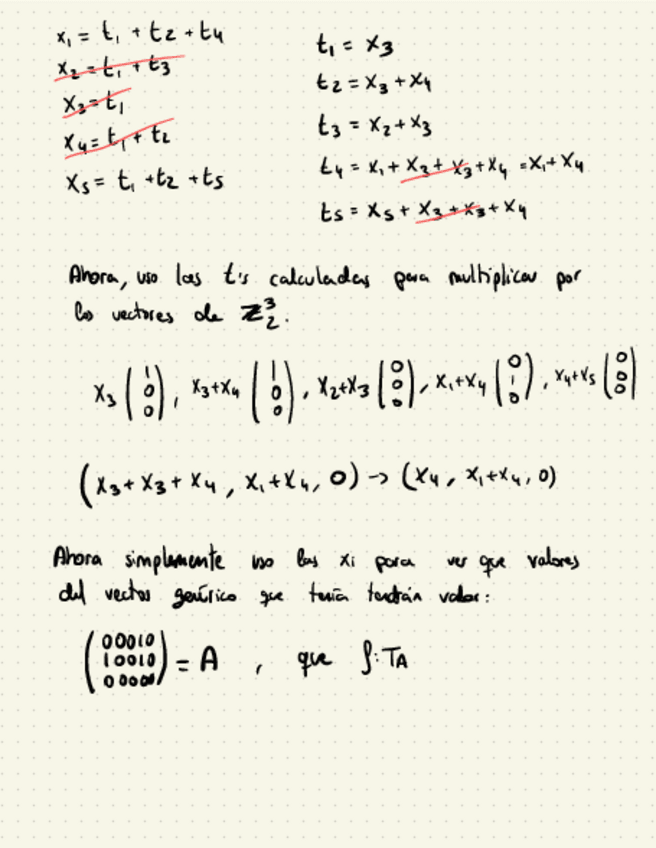 x₁ = t₁ + t₂ + t₄
x₂ = t₁ + t₃
x₃ = t₁
x₄ = t₁ + t₂
x₅ = t₁ + t₂ + t₅
t₁ = x₃
t₂ = x₃ + x₄
t₃ = x₂ + x₃
t₄ = x₁ + x₃ + x₃ + x₄ = x₁ + x₄
t₅ = x₅ + x₃ + x₃ + x₄
Ahora, uso las t's calculadas para multiplicar por
los vectores de ℤ₂³.
x₃ (1 0 0), x₃+x₄ (1 0 0), x₂+x₃ (0 0 0), x₁+x₄ (0 1 0), x₄+x₅ (0 0 0)
(x₃ + x₃ + x₄, x₁ + x₄, 0) → (x₄, x₁+x₄, 0)
Ahora simplemente uso las xi para ver que valores
del vector genérico que tenía tendrán valor:
00010
10010 = A , que f: TA
00000